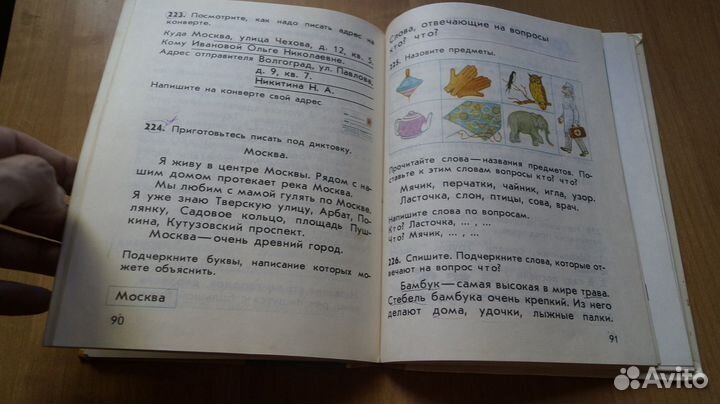 223. Посмотрите, как надо писать адрес на
конверте.
Куда Москва, улица Чехова, д. 12, кв. 5,
Кому Ивановой Ольге Николаевне.
Адрес отправителя Волгоград, ул. Павлова,
д. 9, кв. 7.
Никитина Н. А.
Напишите на конверте свой адрес.
224. Приготовьтесь писать под диктовку.
Москва.
Я живу в центре Москвы. Рядом с на-
шим домом протекает река Москва.
Мы любим с мамой гулять по Москве.
Я уже знаю Тверскую улицу, Арбат, По-
лянку, Садовое кольцо, площадь Пуш-
кина, Кутузовский проспект.
Москва — очень древний город.
Подчеркните буквы, написание которых мо-
жете объяснить.
Москва
90
Слова, отвечающие на вопросы
кто? что?
225. Назовите предметы.
Прочитайте слова — названия предметов. По-
ставьте к этим словам вопросы кто? что?
Мячик, перчатки, чайник, игла, узор.
Ласточка, слон, птицы, сова, врач.
Напишите слова по вопросам.
Кто? Ласточка, ... , ... .
Что? Мячик, ... , ... .
226. Спишите. Подчеркните слова, которые от-
вечают на вопрос что?
Бамбук — самая высокая в мире трава.
Стебель бамбука очень крепкий. Из него
делают дома, удочки, лыжные палки.
91
Avito